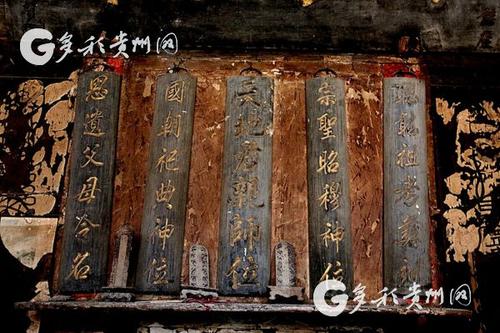 多彩贵州网
昭祖考
宗聖昭穆神位
天地君親師位
國朝祀典神位
恩遺父母名
多彩贵州网